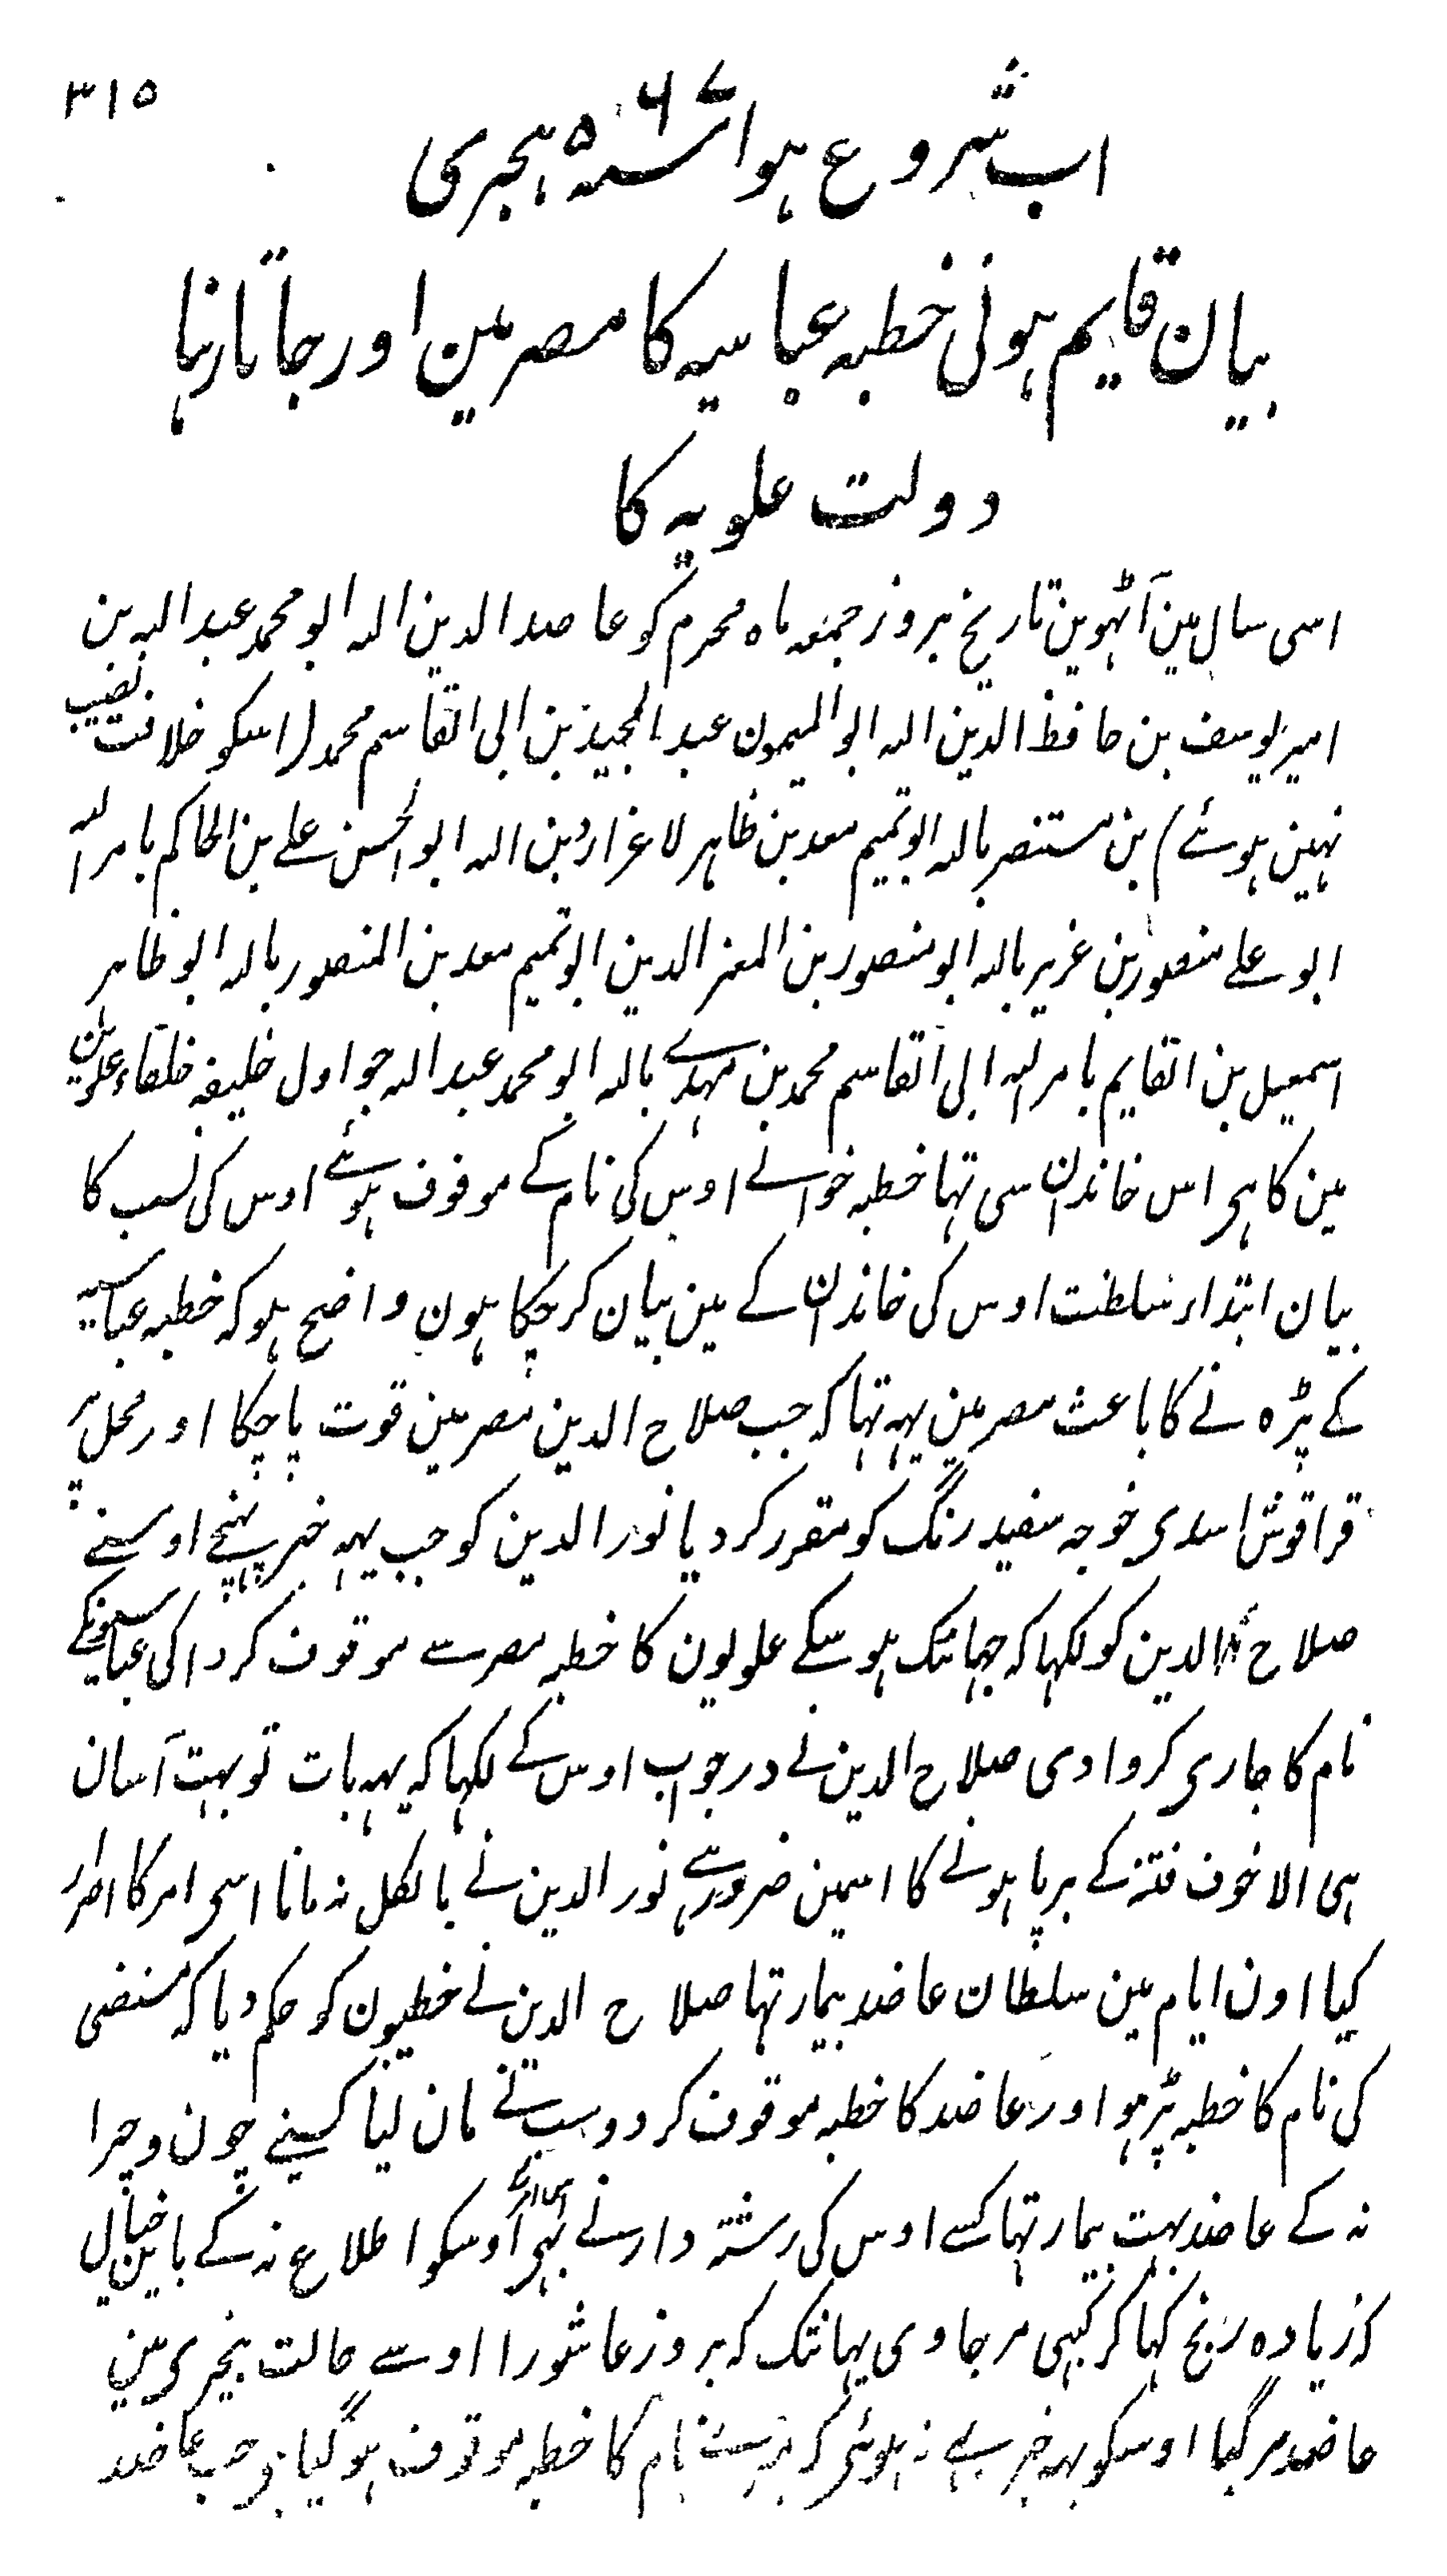 ۳۱۵
اب شروع ہوا ۵۶۷ سنہ ہجری
بیان قایم ہونی خطبہ عباسیہ کا مصر مین اور جاتا رہنا
دولت علویہ کا
اسی سال مین آٹہوین تاریخ بروز جمعہ ماہ محرم کو عاضد الدین اللہ ابو محمد عبد اللہ بن
امیر یوسف بن حافظ الدین اللہ ابو المیمون عبد المجید بن ابی القاسم محمد (اسکو خلافت نصیب
نہین ہوئے) بن مستنصر باللہ ابو تمیم معد بن ظاہر لاعزاز دین اللہ ابو الحسن علے بن الحاکم بامر اللہ
ابو علے منصور بن عزیز باللہ ابو منصور بن المعز الدین ابو تمیم معد بن المنصور باللہ ابو ظاہر
اسمعیل بن القایم بامر اللہ ابی القاسم محمد بن مہدے باللہ ابو محمد عبد اللہ جو اول خلیفہ خلفاء علویین
مین کا ہی اس خاندان سی تہا خطبہ خوانے اوس کی نام کے موقوف ہوئے اوس کی نسب کا
بیان ابتداء سلطنت اوس کی خاندان کے مین بیان کر چکا ہون واضح ہو کہ خطبہ عباسیہ
کے پڑہ نے کا باعث مصر مین یہہ تہا کہ جب صلاح الدین مصر مین قوت پا چکا اور محل پر
قراقوش اسدی خوجہ سفید رنگ کو مقرر کر دیا نور الدین کو جب یہہ خبر پہنچے اوسنے
صلاح الدین کو لکہا کہ جہانتک ہو سکے علویون کا خطبہ مصر سے موقوف کر داکی عباسیونکے
نام کا جاری کروا دی صلاح الدین نے در جواب اوس کے لکہا کہ یہہ بات تو بہت آسان
ہی الا خوف فتنہ کے برپا ہونے کا اسمین ضرور ہے نور الدین نے بالکل نہ مانا اسی امر کا اصرار
کیا اون ایام مین سلطان عاضد بیمار تہا صلاح الدین نے خطیبون کو حکم دیا کہ مستضی
کی نام کا خطبہ پڑہو اور عاضد کا خطبہ موقوف کر دو سب نے مان لیا کسینے چون و چرا
نہ کے عاضد بہت بیمار تہا کسے اوس کی رشتہ دار نے بہی اس امر کے اوسکو اطلاع نہ کے باین خیال
کہ زیادہ رنج کہا کر کبہی مر جاوی یہانتک کہ بروز عاشورا اوسے حالت بیخبری مین
عاضد مر گیا اوسکو یہہ خبر بہے نہ ہوئی کہ میرے نام کا خطبہ موقوف ہو گیا ہی جب عاضد